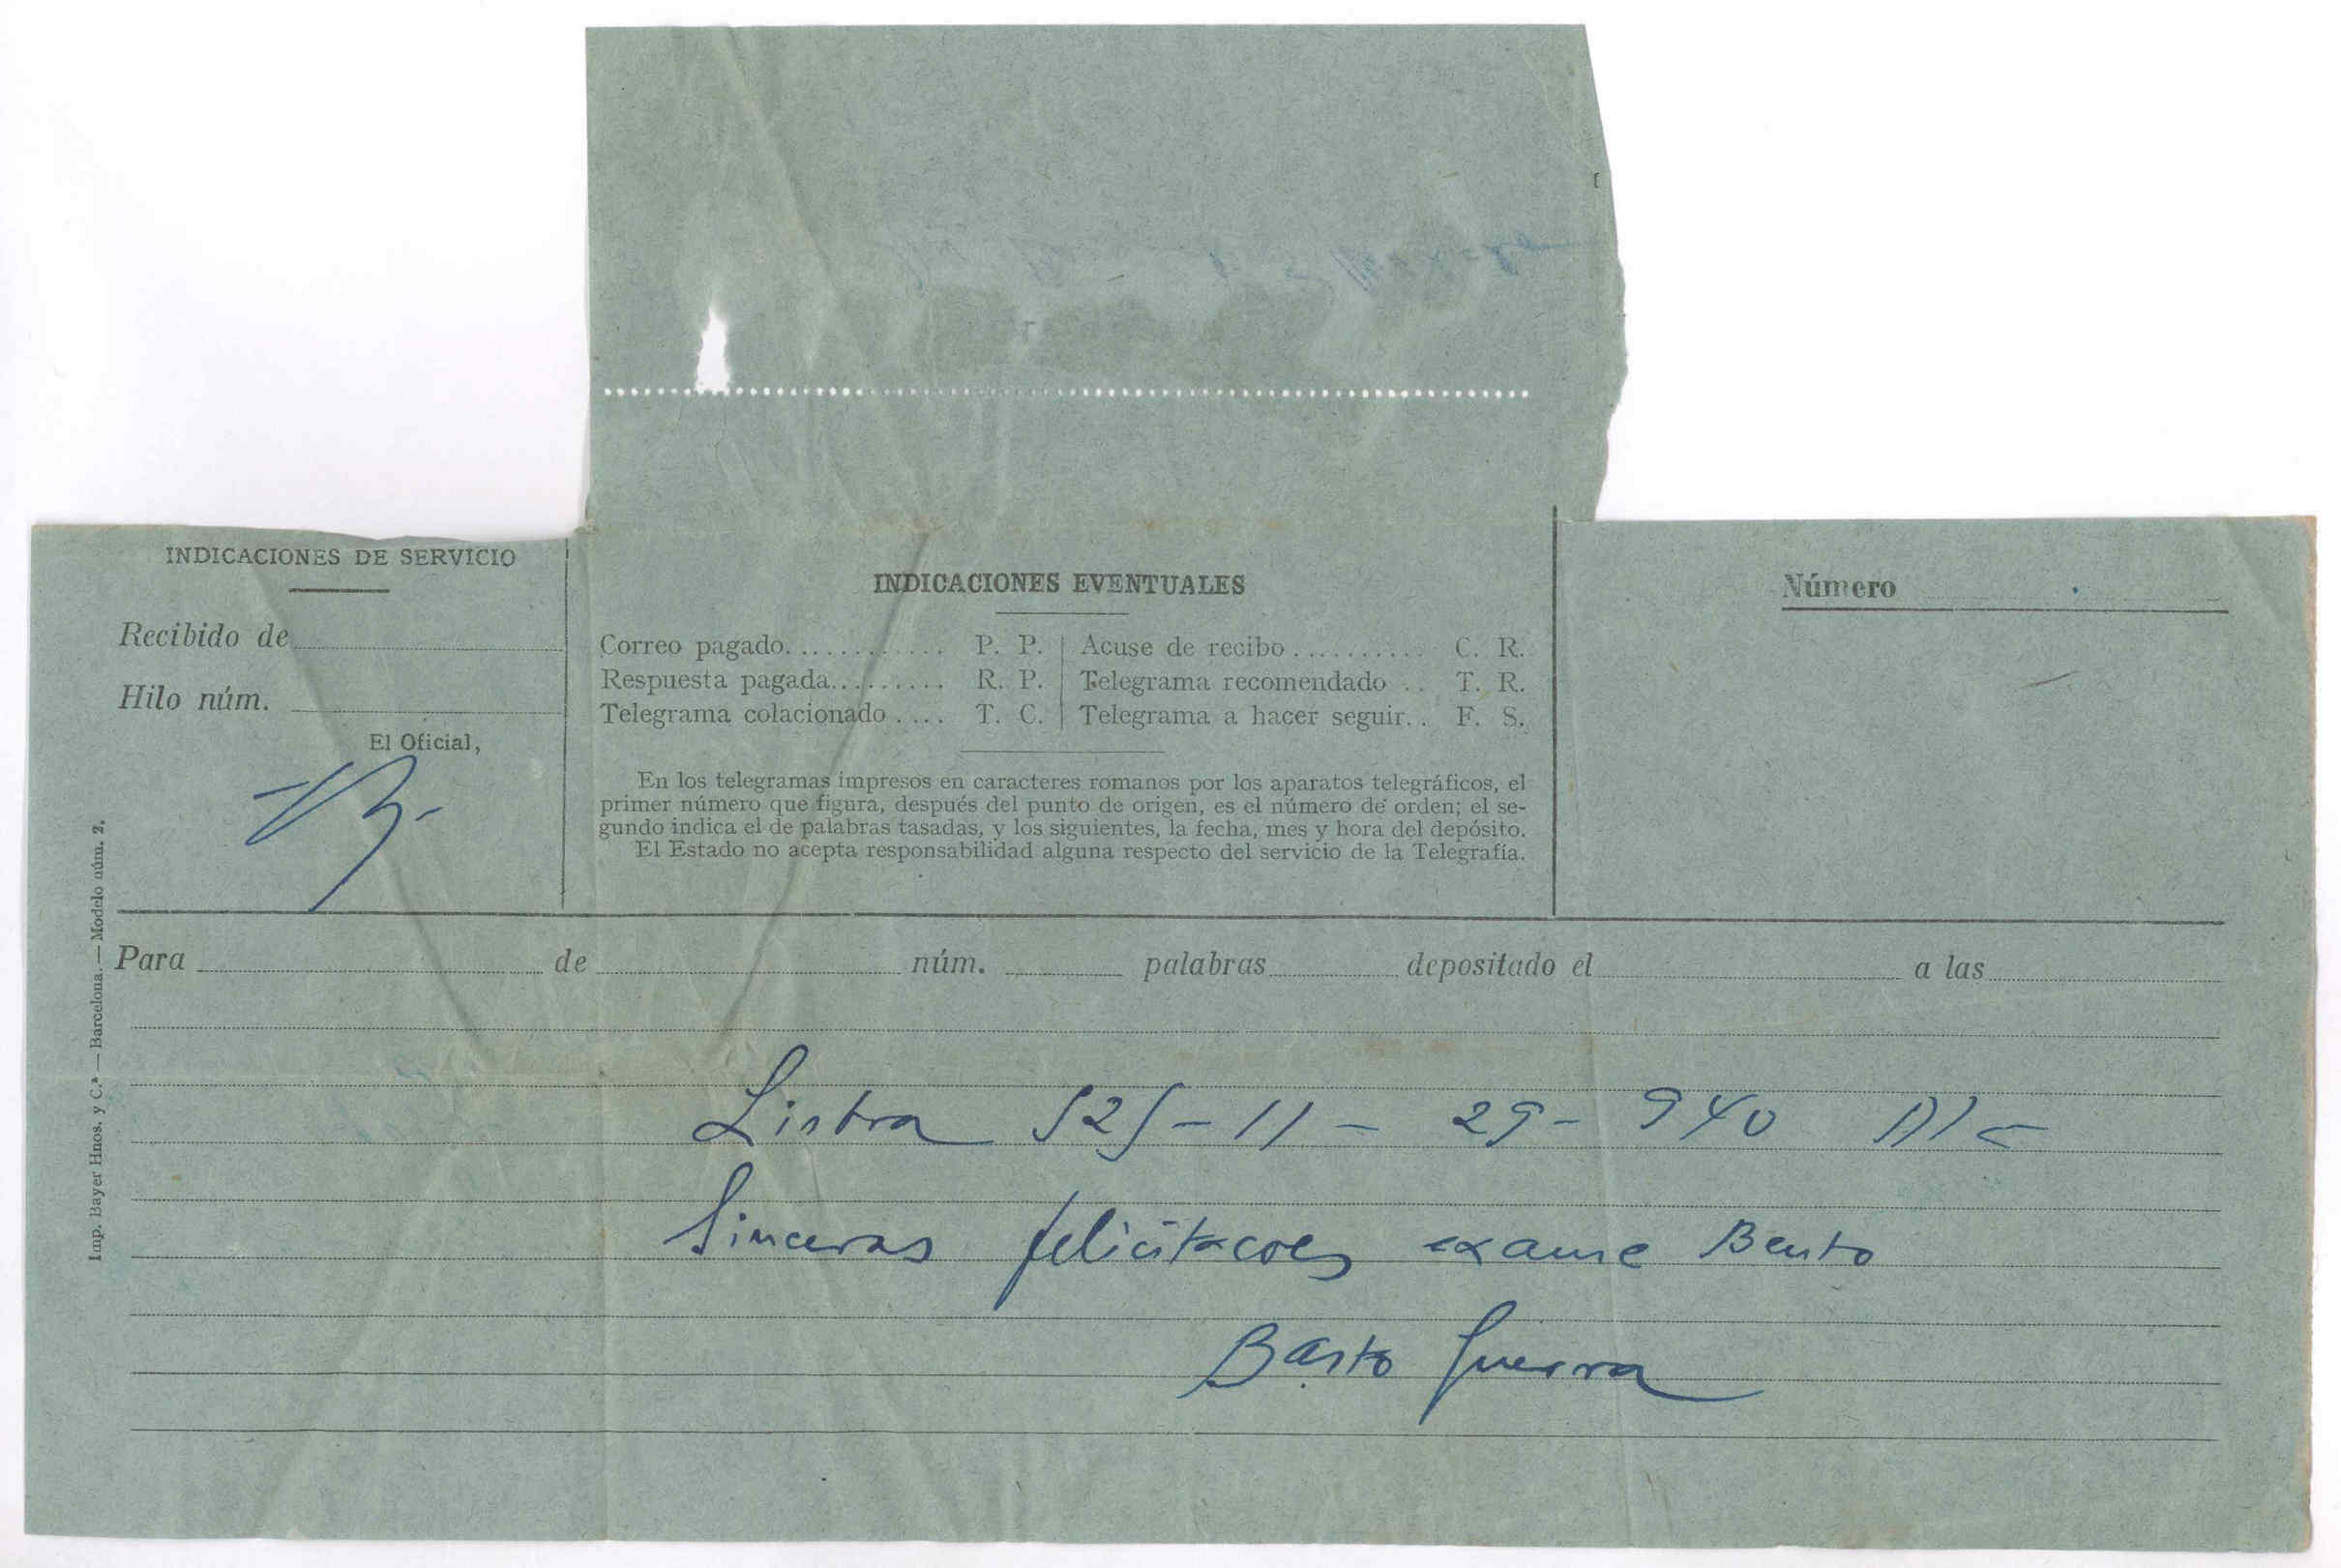 INDICACIONES DE SERVICIO
Recibido de
Hilo núm.
El Oficial,
INDICACIONES EVENTUALES
Correo pagado............ P. P. | Acuse de recibo.......... C. R.
Respuesta pagada......... R. P. | Telegrama recomendado .. T. R.
Telegrama colacionado.... T. C. | Telegrama a hacer seguir.. F. S.
En los telegramas impresos en caracteres romanos por los aparatos telegráficos, el
primer número que figura, después del punto de origen, es el número de orden; el se-
gundo indica el de palabras tasadas, y los siguientes, la fecha, mes y hora del depósito.
El Estado no acepta responsabilidad alguna respecto del servicio de la Telegrafía.
Número
Para de núm. palabras depositado el a las
525-11- 29- 940
Sinceras felicitacoes exame Bento
Basto Guerra
Imp. Bayer Hnos. y C.ª — Barcelona. — Modelo núm. 2.